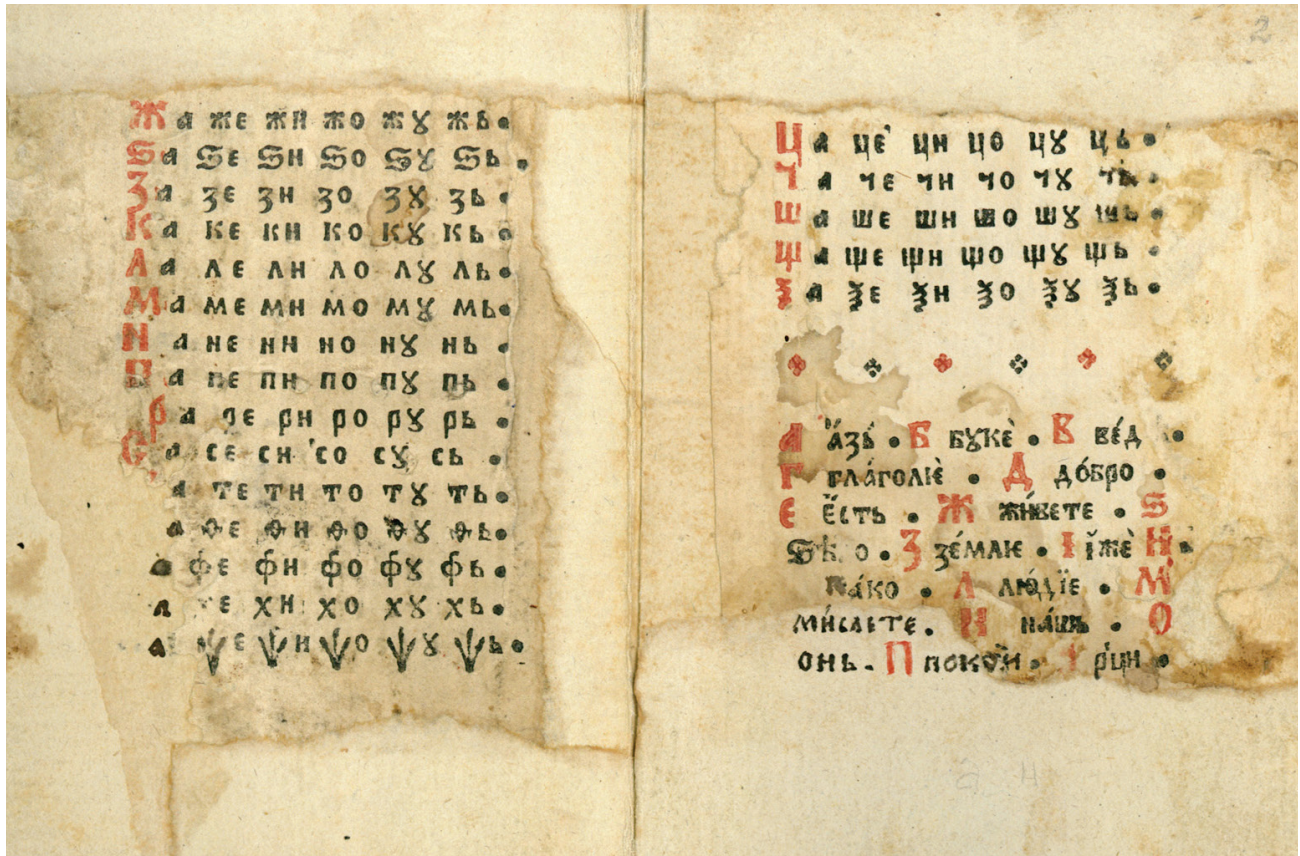 Жа же жи жо жꙋ жь.
Ѕа ѕе ѕи ѕо ѕꙋ ѕь.
За зе зи зо зꙋ зь.
Ка ке ки ко кꙋ кь.
Ла ле ли ло лꙋ ль.
Ма ме ми мо мꙋ мь.
На не ни но нꙋ нь.
Па пе пи по пꙋ пь.
Ра ре ри ро рꙋ рь.
Са се си со сꙋ сь.
а те ти то тꙋ ть.
а ѳе ѳи ѳо ѳꙋ ѳь.
фе фи фо фꙋ фь.
а хи хо хꙋ хь.
а ѱе ѱи ѱо ѱꙋ ѱь.
2
Ца цѐ ци цо цꙋ ць.
Ча че чи чо чꙋ чь.
Ша ше ши шо шꙋ шь.
Ща ще щи що щꙋ щь.
Ѯа ѯе ѯи ѯо ѯꙋ ѯь.
А а҆́зь . Б бꙋкѐ . В ве́д .
Г глаголѥ̀ . Д до́бро .
Е є҆́сть . Ж жи́вете . Ѕ
З зе́млѥ . І и҆жѐ И
ка́ко . Л лю́дїе . М
ми́слете . Н на́шь . О
онь . П поко́и . рци .